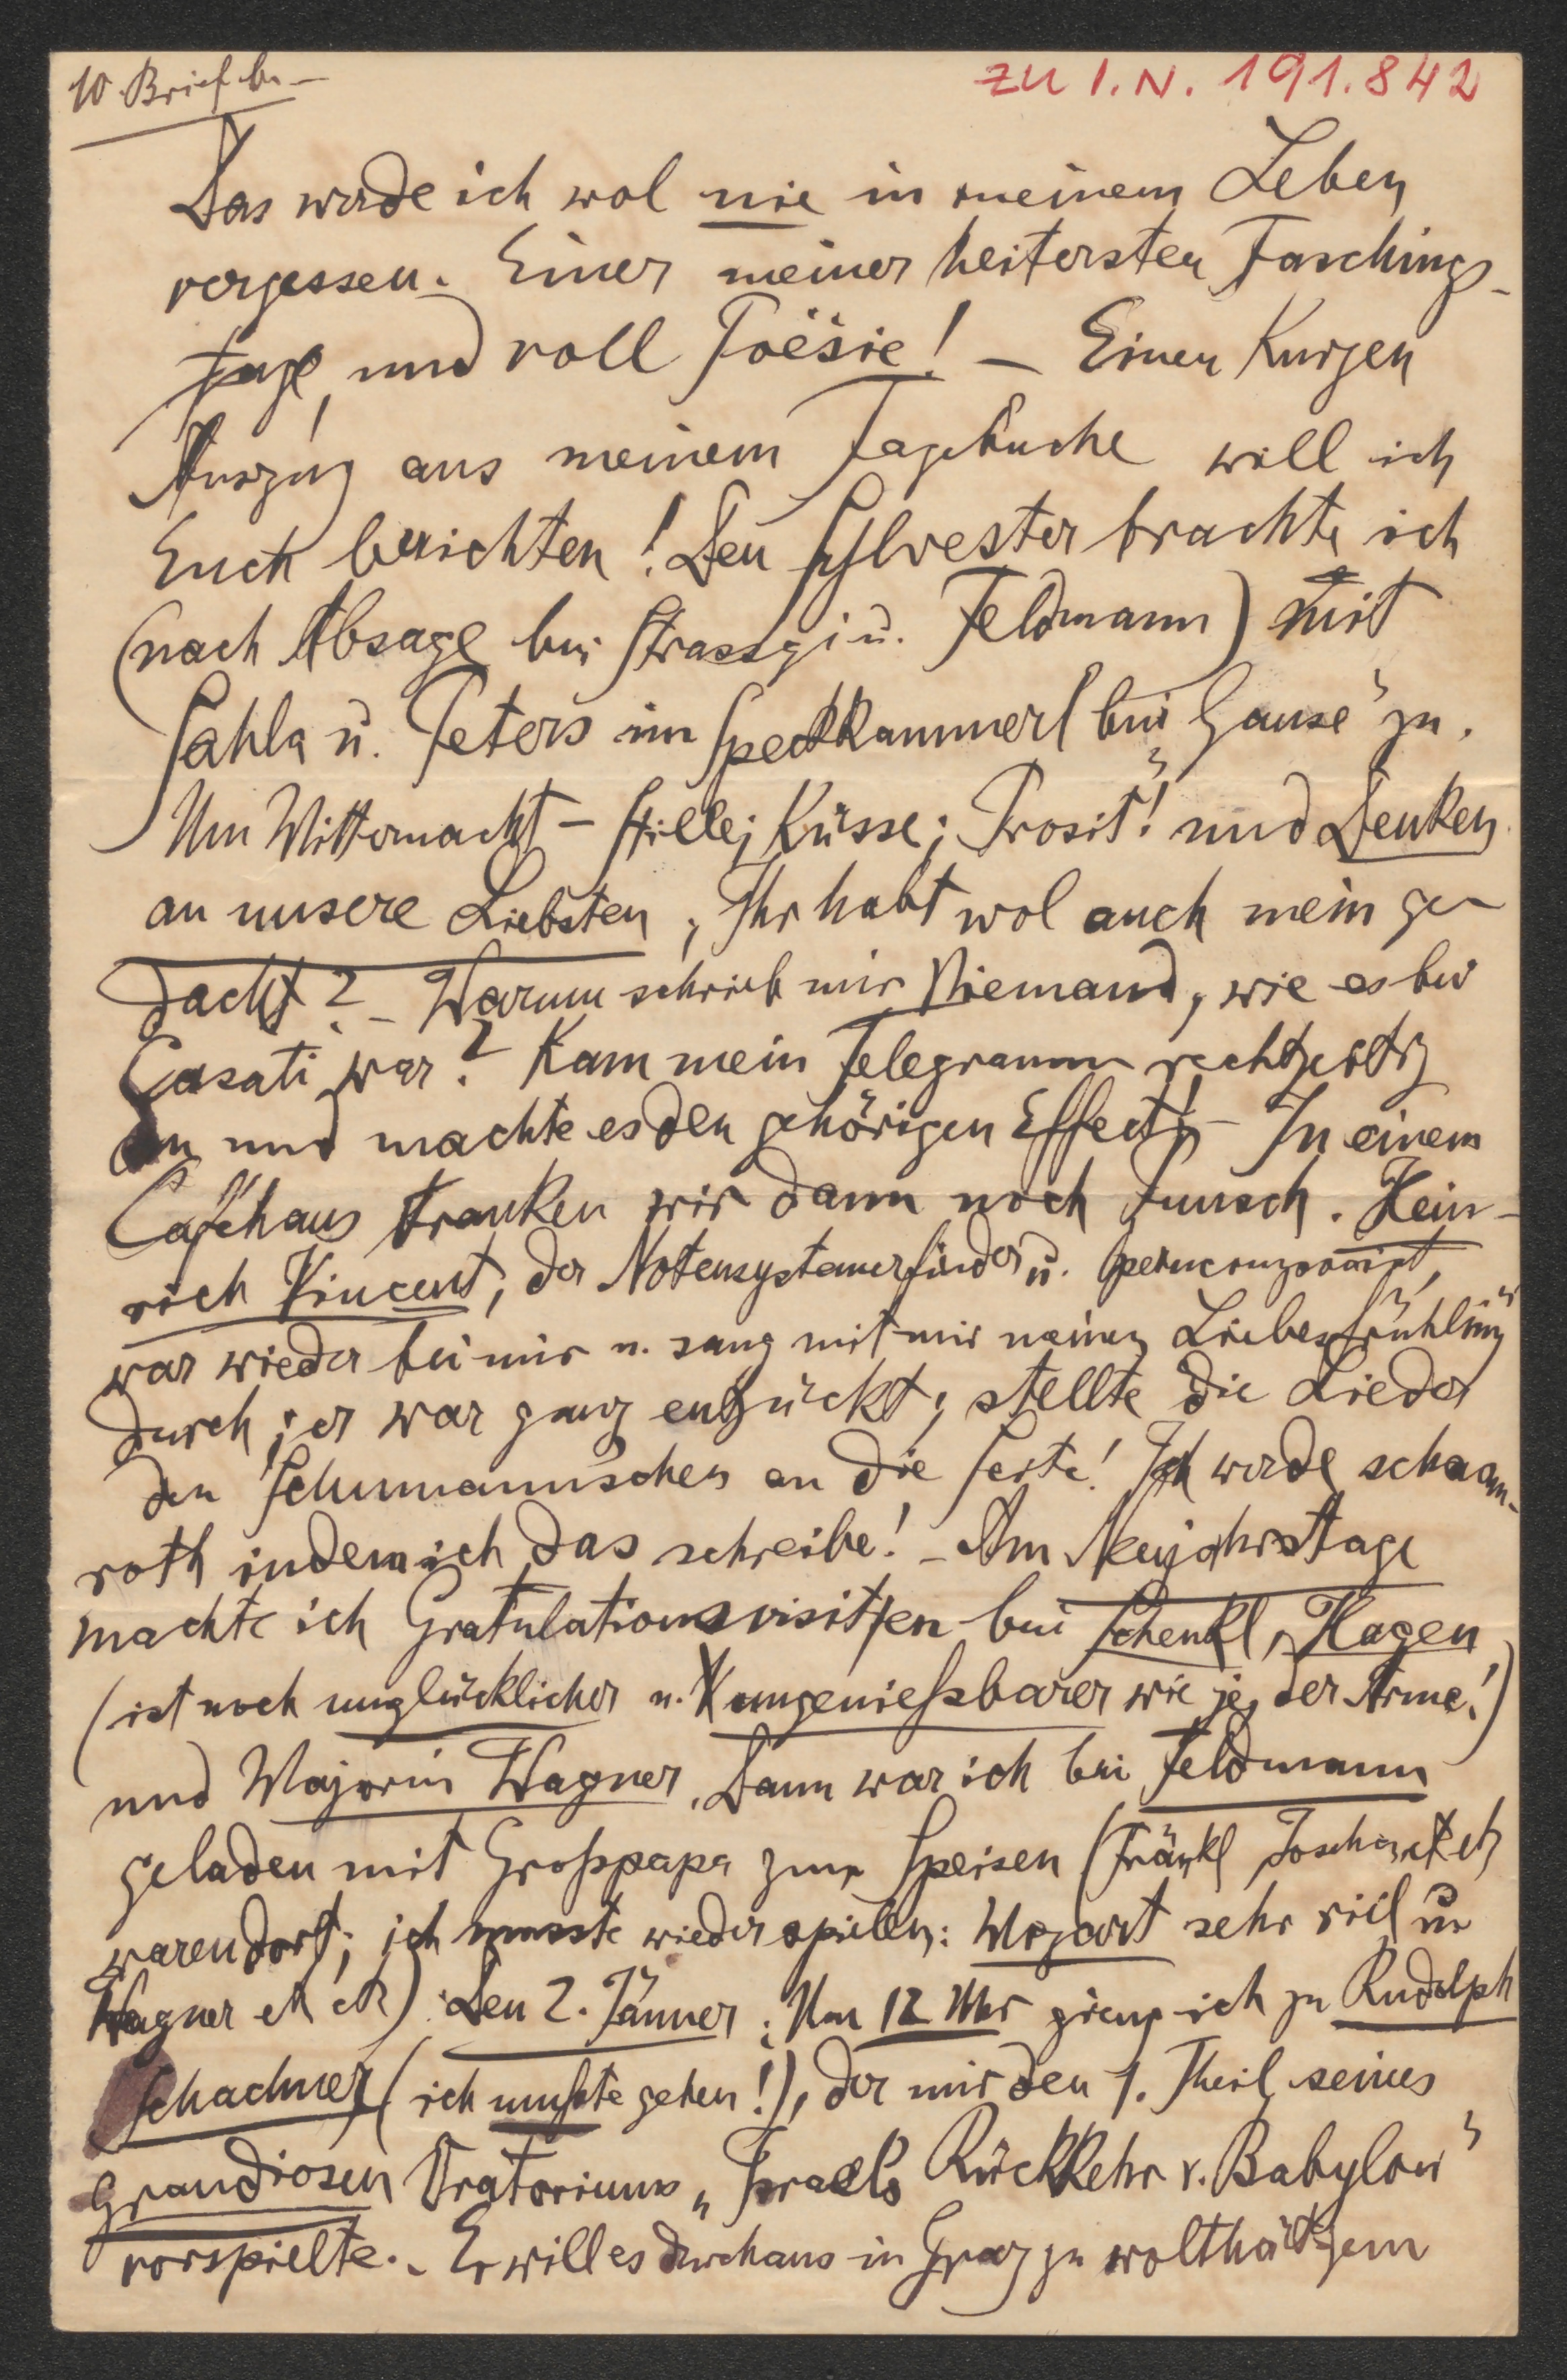 10. Brief b. –
ZU I.N. 191.842
Das werde ich wol nie in meinem Leben
vergessen. Einer meiner heitersten Faschings-
tage, und voll Poësie! – Einen kurzen
Auszug aus meinem Tagebuche will ich
Euch berichten! Den Sylvester brachte ich
(nach Absage bei Strassgi u. Feldmann) mit
Sahla u. Peters im Speckkammerl bei „Gause“ zu.
Um Mitternacht – Stille; Küsse; Prosit! und Denken
an unsere Liebsten; Ihr habt wol auch mein ge-
dacht? – Warum schrieb mir Niemand, wie es bei
Casati war? Kam mein Telegramm rechtzeitig
an und machte es den gehörigen Effect? – In einem
Caféhaus tranken wir dann noch Punsch. Hein-
rich Vincent, der Notensystemerfinder u. Operncomponist,
war wieder bei mir u. sang mit mir meinen „Liebesfrühling“
durch; er war ganz entzückt; stellte die Lieder
den Schumannischen an die Seite! Ich werde schaam-
roth indem ich das schreibe! – Am Neujahrstage
machte ich Gratulationsvisiten bei Schenkl, Hagen
(ist noch unglücklicher u. ungenießbarer wie je, der Arme!)
und Majorin Wagner. Dann war ich bei Feldmann
geladen mit Großpapa zum Speisen (Fränkl, etc
waren dort; ich musste wieder spielen: Mozart sehr viel u.
Wagner etc etc). Den 2. Jänner: Um 12 Uhr gieng ich zu Rudolph
Schachner (ich mußte gehen!), der mir den 1. Theil seines
grandiosen Oratoriums „Israels Rückkehr v. Babylon“
vorspielte. – Er will es durchaus in Graz zu wolthätigem